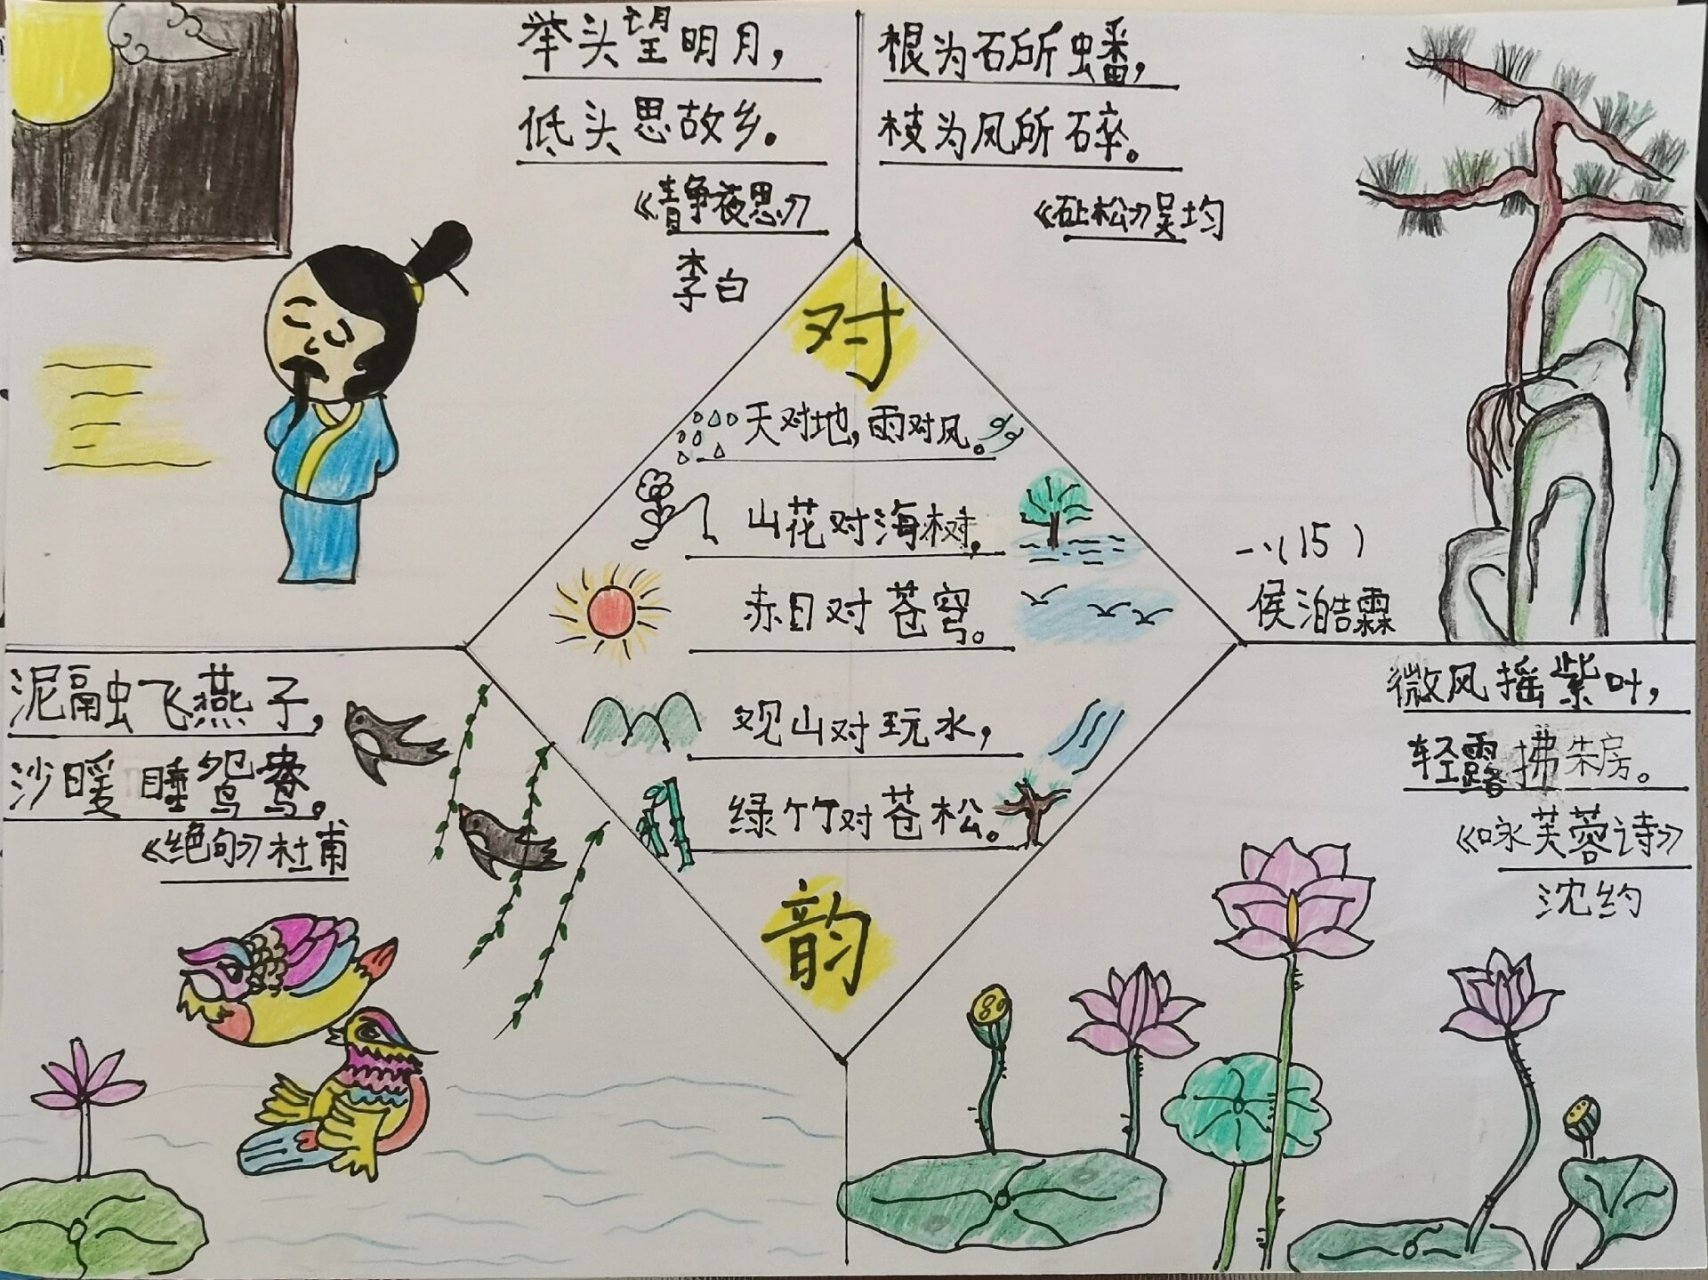 举头望明月，
低头思故乡。
《静夜思》
李白
根为石所蟠，
枝为风所碎。
《砠松》吴均
对
天对地，雨对风。
山花对海树，
赤日对苍穹。
观山对玩水，
绿竹对苍松。
韵
一、（15）
侯泊皓霖
泥融虫飞燕子，
沙暖睡鸳鸯。
《绝句》杜甫
微风摇紫叶，
轻露拂朱房。
《咏芙蓉诗》
沈约